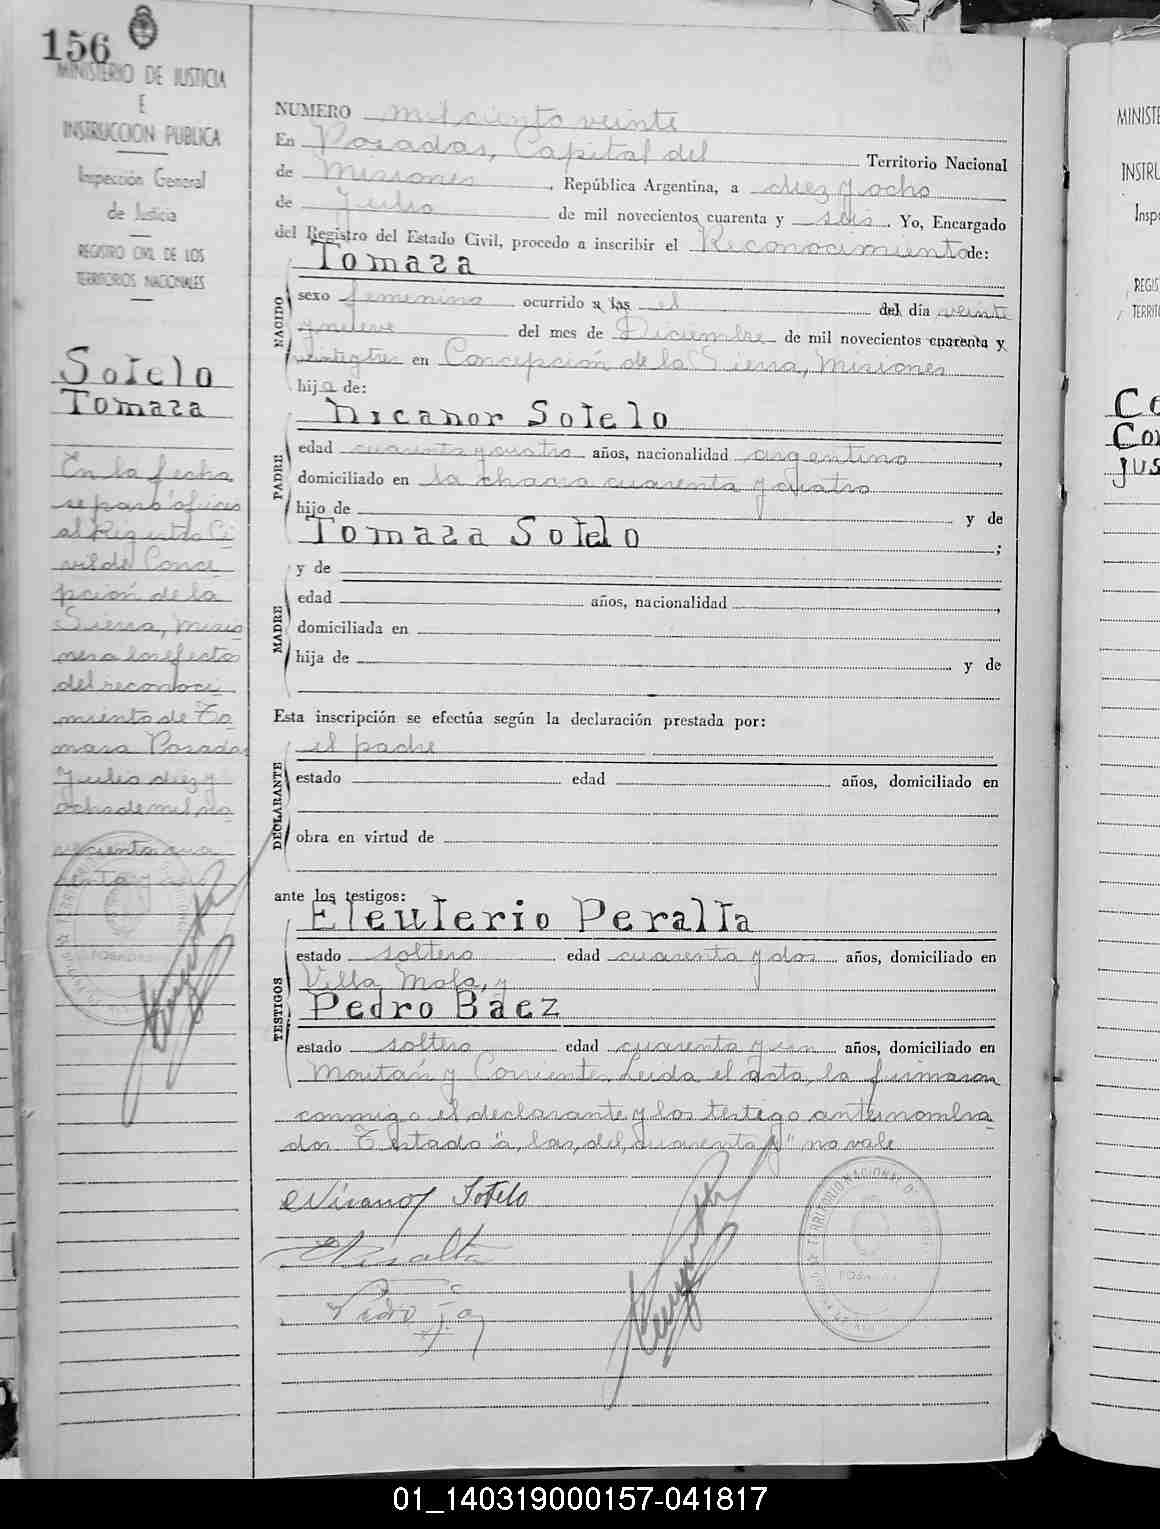 156
MINISTERIO DE JUSTICIA
E
INSTRUCCION PUBLICA
Inspección General
de Justicia
REGISTRO CIVIL DE LOS
TERRITORIOS NACIONALES
Sotelo
Tomasa
En la fecha
se pasó oficio
al Registro Ci
vil de Conce
pción de la
Sierra, Misio
nes a los efectos
del reconoci
miento de To
masa Posadas
Julio diez y
ocho de mil no
vecientos cua
renta y seis
NUMERO mil ciento veinte
En Posadas, Capital del Territorio Nacional
de Misiones, República Argentina, a diez y ocho
de Julio de mil novecientos cuarenta y seis. Yo, Encargado
del Registro del Estado Civil, procedo a inscribir el Reconocimiento de:
Tomasa
NACIDO
sexo femenino ocurrido a las el del día veinte
y nueve del mes de Diciembre de mil novecientos cuarenta y
veintitres en Concepción de la Sierra, Misiones
hija de:
Nicanor Sotelo
PADRE
edad cuarenta y cuatro años, nacionalidad argentino,
domiciliado en la chacra cuarenta y cuatro
hijo de y de
Tomasa Sotelo;
y de
MADRE
edad años, nacionalidad,
domiciliada en
hija de y de
Esta inscripción se efectúa según la declaración prestada por:
el padre
DECLARANTE
estado edad años, domiciliado en
obra en virtud de
ante los testigos:
Eleuterio Peralta
TESTIGOS
estado soltero edad cuarenta y dos años, domiciliado en
Villa Mola, y
Pedro Baez
estado soltero edad cuarenta y un años, domiciliado en
Moritán y Corrientes. Leida el acta, la firmaron
conmigo el declarante y los testigo antesnombra
dos Testado "a, las, del, cuarenta y" no vale
Nicanor Sotelo
EPeralta
Pedro
POSADAS
MINISTE
INSTRU
Inspe
REGIS
TERRITO
Co
Con
jus
01_140319000157-041817